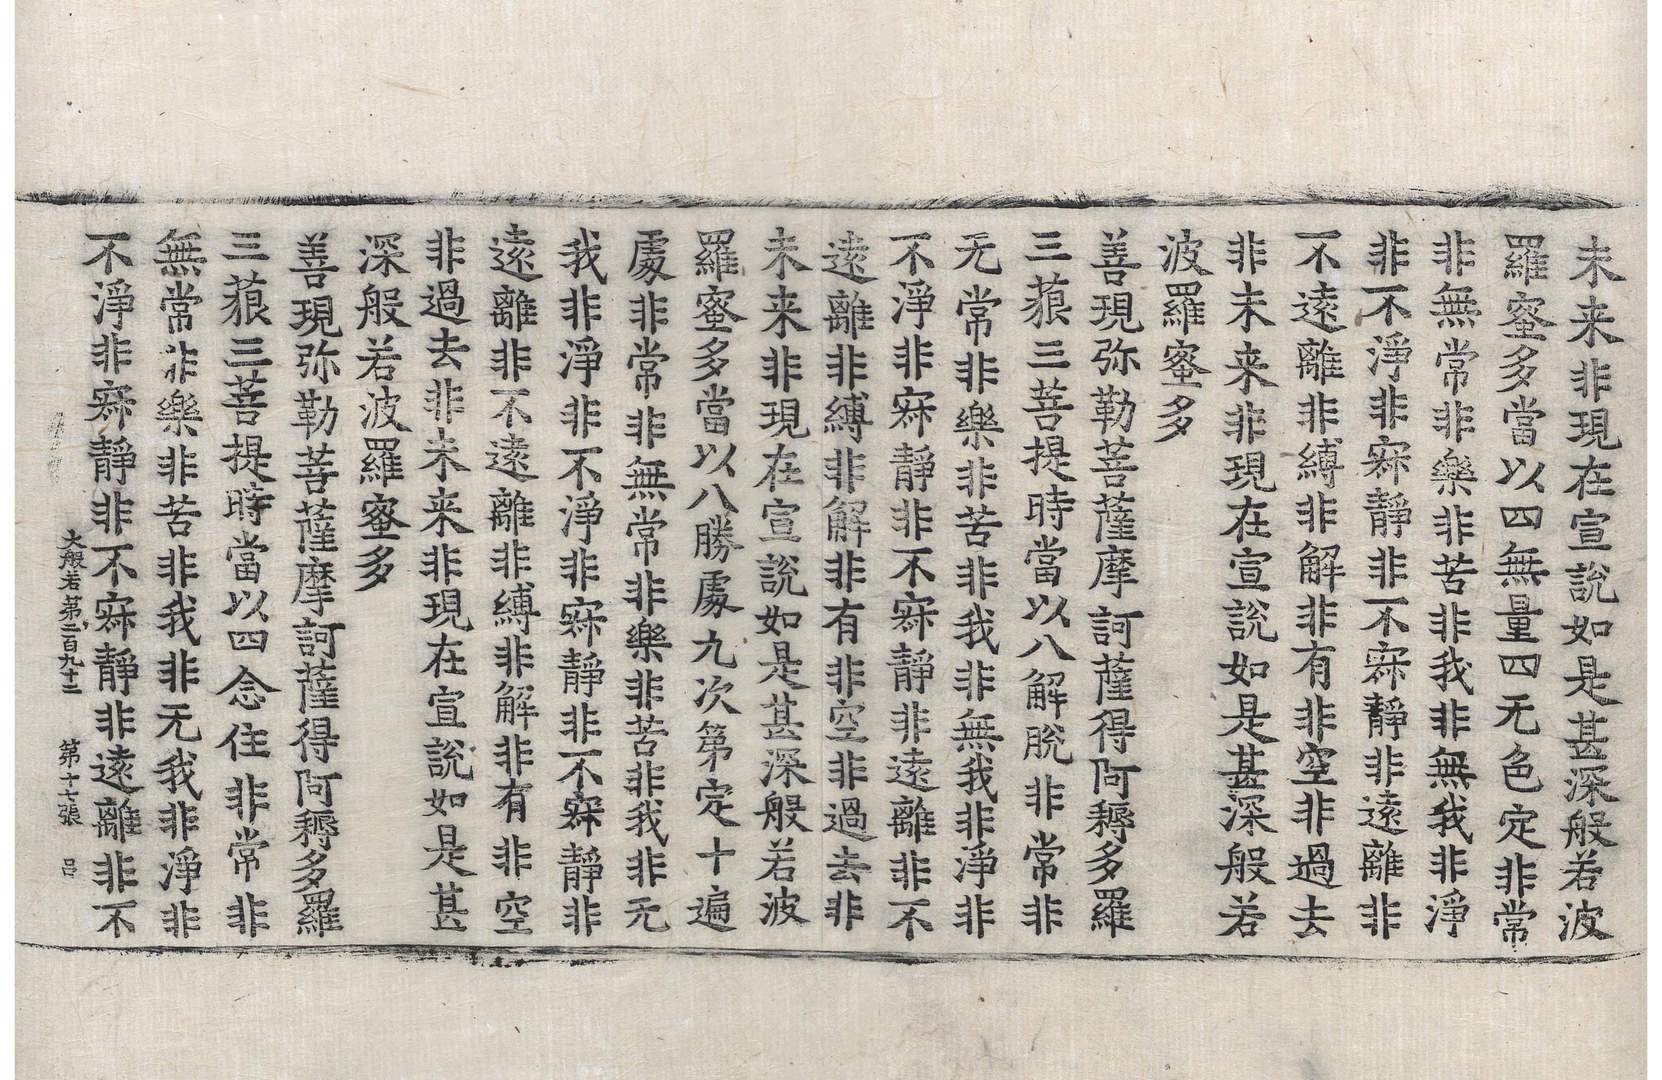 未来非現在宣說如是甚深般若波
羅蜜多當以四無量四无色定非常
非無常非樂非苦非我非無我非淨
非不淨非寂靜非不寂靜非遠離非
不遠離非縛非解非有非空非過去
非未来非現在宣說如是甚深般若
波羅蜜多
善現弥勒菩薩摩訶薩得阿耨多羅
三藐三菩提時當以八解脫非常非
无常非樂非苦非我非無我非淨非
不淨非寂靜非不寂靜非遠離非不
遠離非縛非解非有非空非過去非
未来非現在宣說如是甚深般若波
羅蜜多當以八勝處九次第定十遍
處非常非無常非樂非苦非我非无
我非淨非不淨非寂靜非不寂靜非
遠離非不遠離非縛非解非有非空
非過去非未来非現在宣說如是甚
深般若波羅蜜多
善現弥勒菩薩摩訶薩得阿耨多羅
三藐三菩提時當以四念住非常非
無常非樂非苦非我非无我非淨非
不淨非寂靜非不寂靜非遠離非不
大般若第二百九十二 第十七張 呂